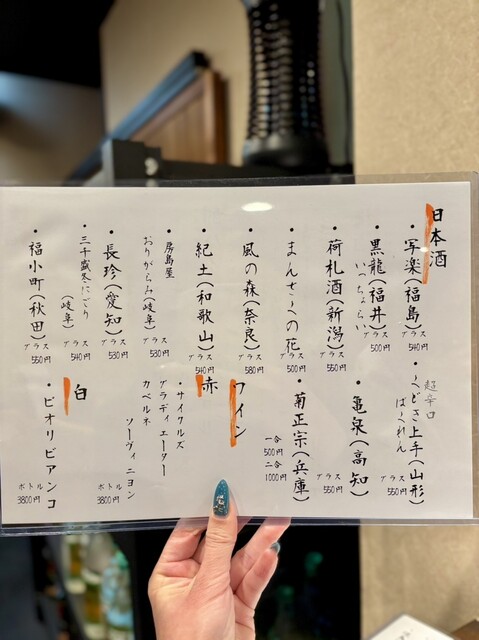 日本酒
・写楽(福島)
グラス 540円
・黒龍(福井)
いっちょらい
グラス 500円
・荷札酒(新潟)
グラス 550円
・まんさくの花
グラス 500円
・風の森(奈良)
グラス 580円
・紀土(和歌山)
グラス 540円
・房島屋
おりがらみ(岐阜)
グラス 530円
・長珍(愛知)
グラス 530円
・三千盛冬にごり
(岐阜)
グラス 540円
・福小町(秋田)
グラス 550円
超辛口
・くどき上手(山形)
ばくれん
グラス 550円
・亀泉(高知)
グラス 550円
・菊正宗(兵庫)
一合 500円
二合 1000円
ワイン
赤
・サイクルズ
グラディエーター
カベルネ
ソーヴィニヨン
ボトル 3800円
白
・ピオリビアンコ
ボトル 3800円